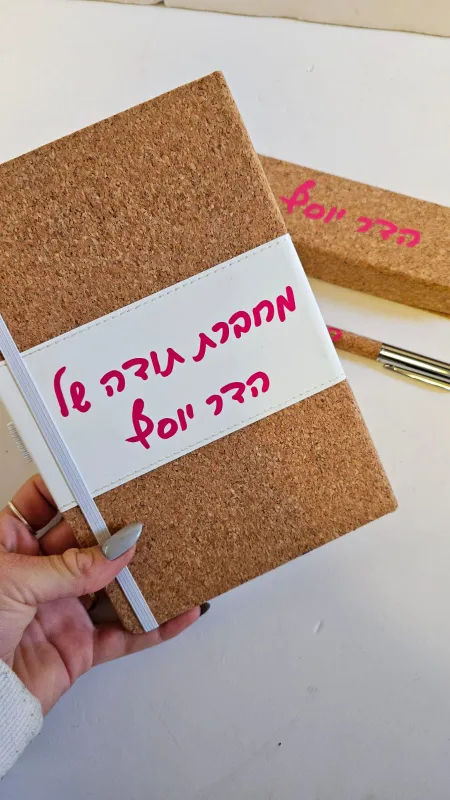 מחברת תודה של
הדר יוסף
הדר יוסף